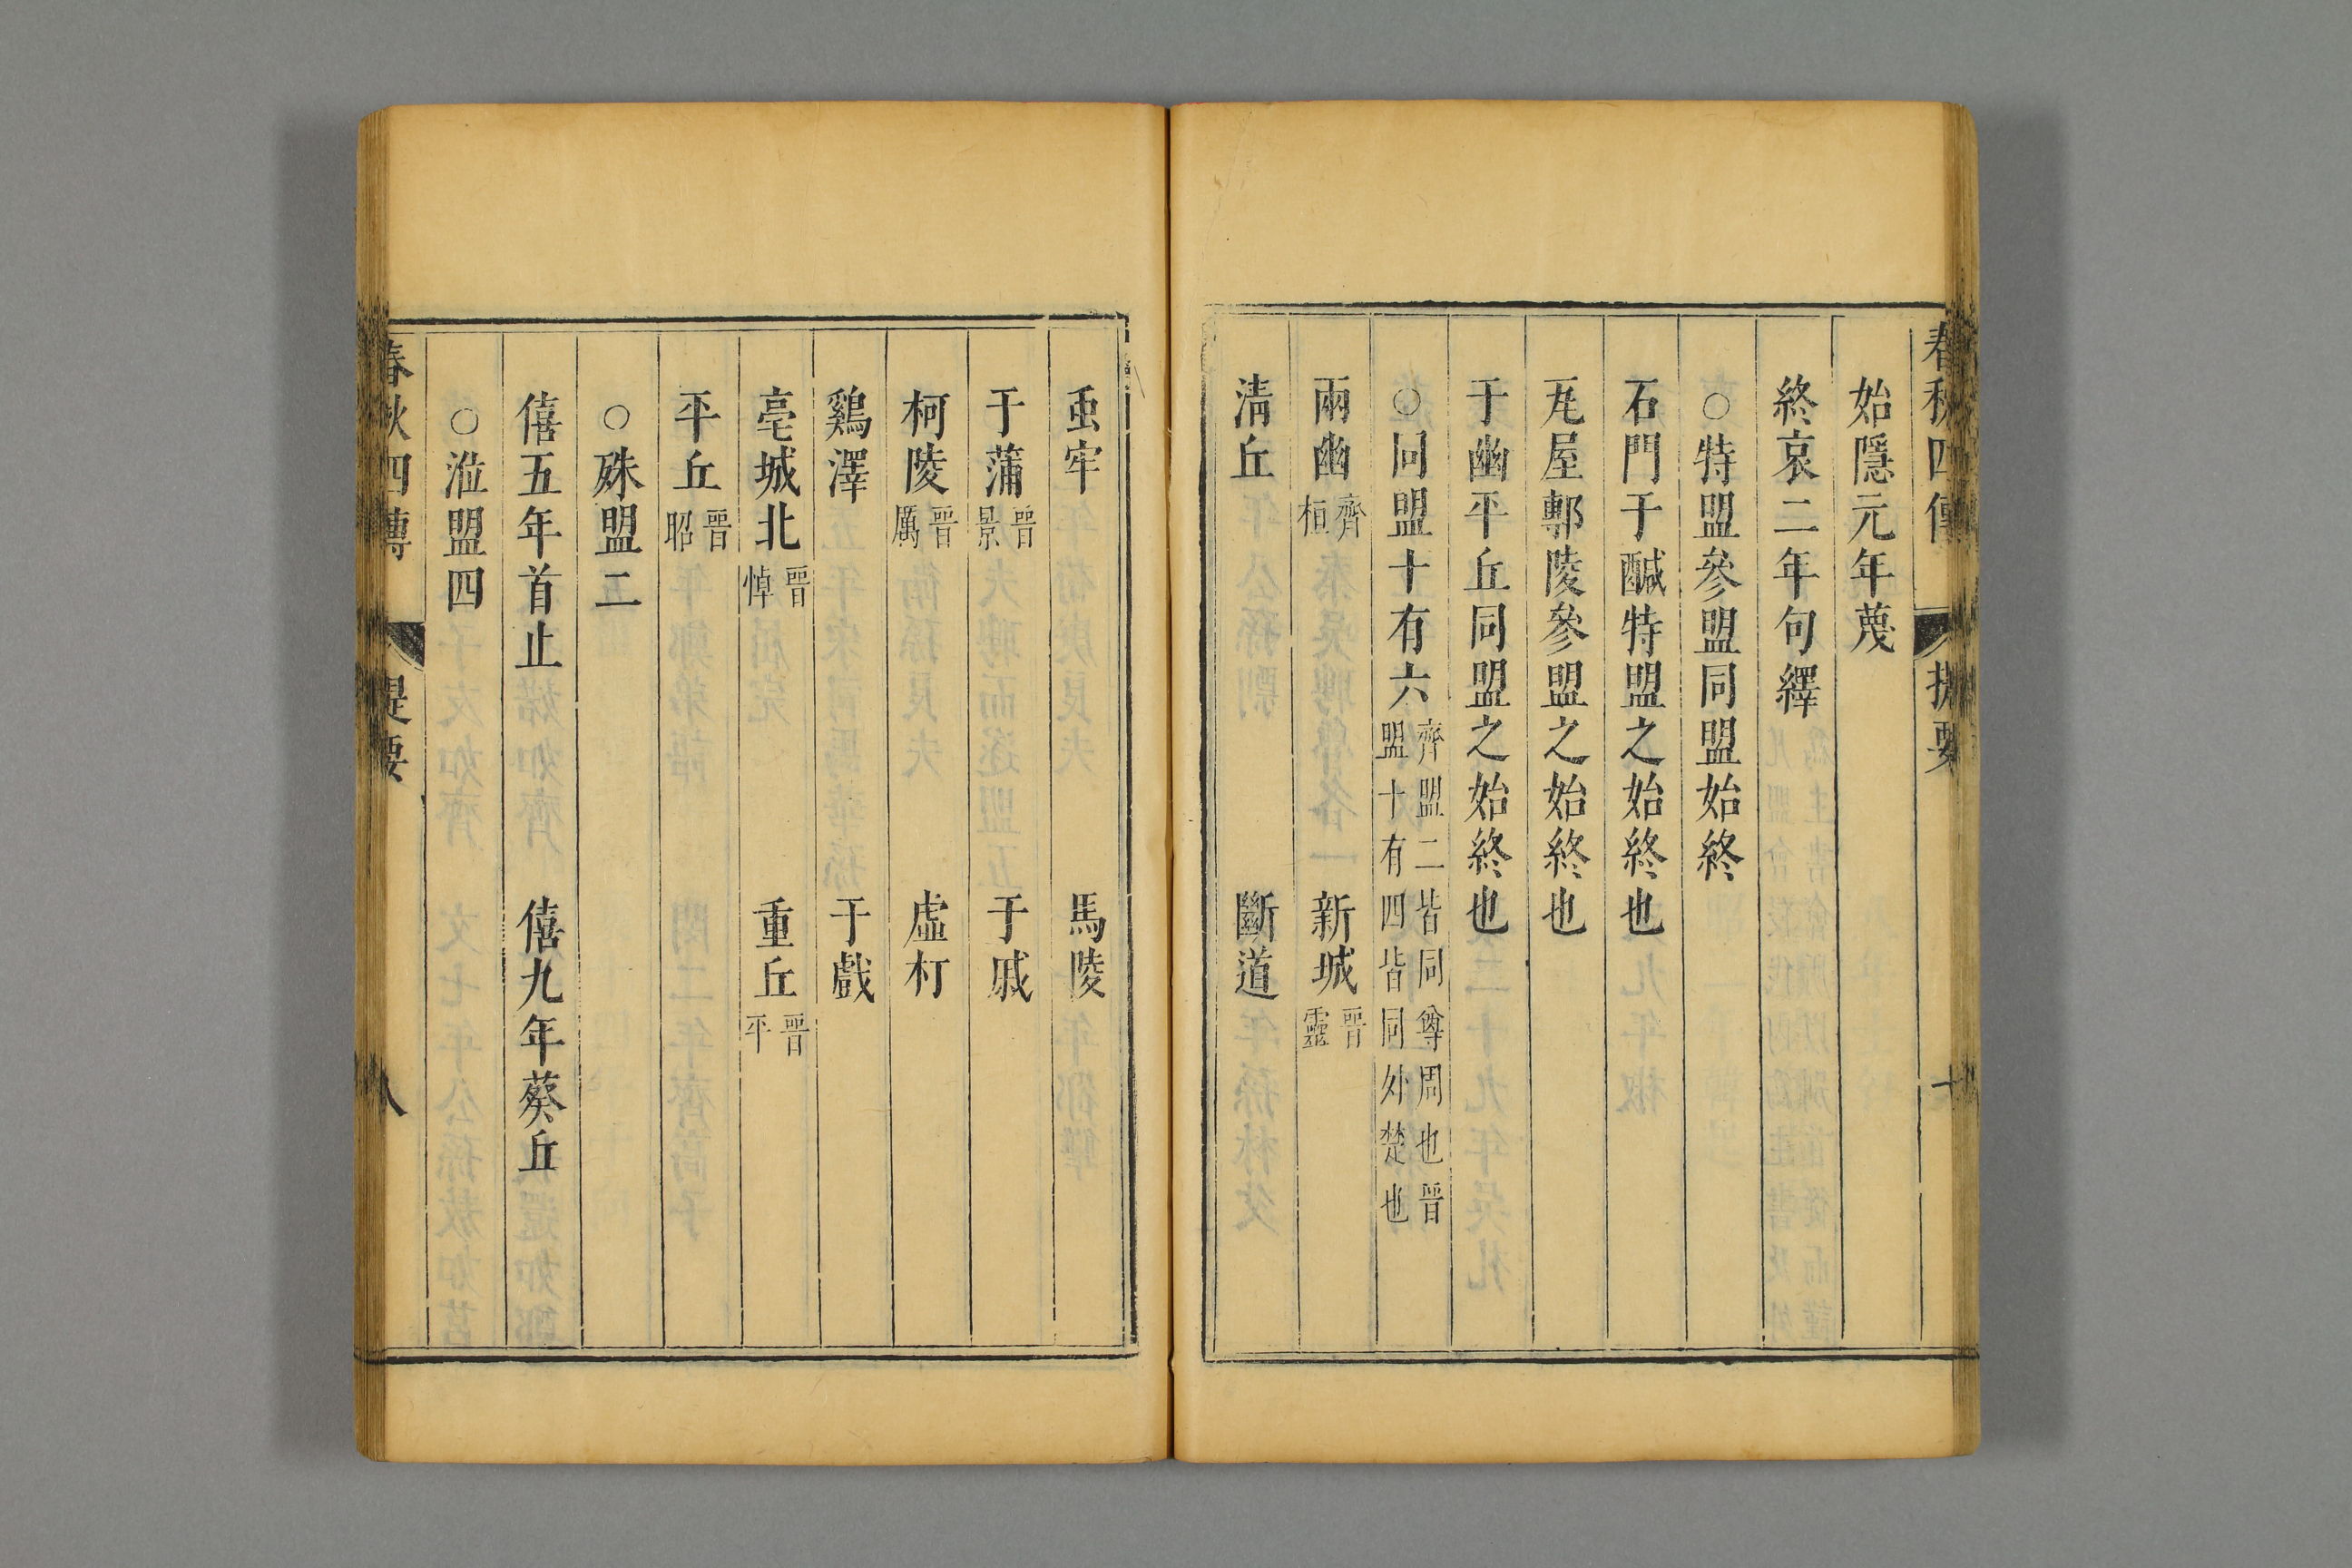 春秋四傳 提要
始隱元年蔑
終哀二年句繹
○特盟參盟同盟始終
石門于鹹特盟之始終也
瓦屋鄟陵參盟之始終也
于幽平丘同盟之始終也
○同盟十有六 齊盟二皆同尊周也晉盟十有四皆同外楚也
兩幽 齊桓 新城 晉靈
清丘 斷道
蟲牢 馬陵
于蒲 晉景 于戚
柯陵 晉厲 虛朾
鷄澤 于戲
亳城北 晉悼 重丘 晉平
平丘 晉昭
○殊盟二
僖五年首止 僖九年葵丘
○涖盟四
春秋四傳 提要 八